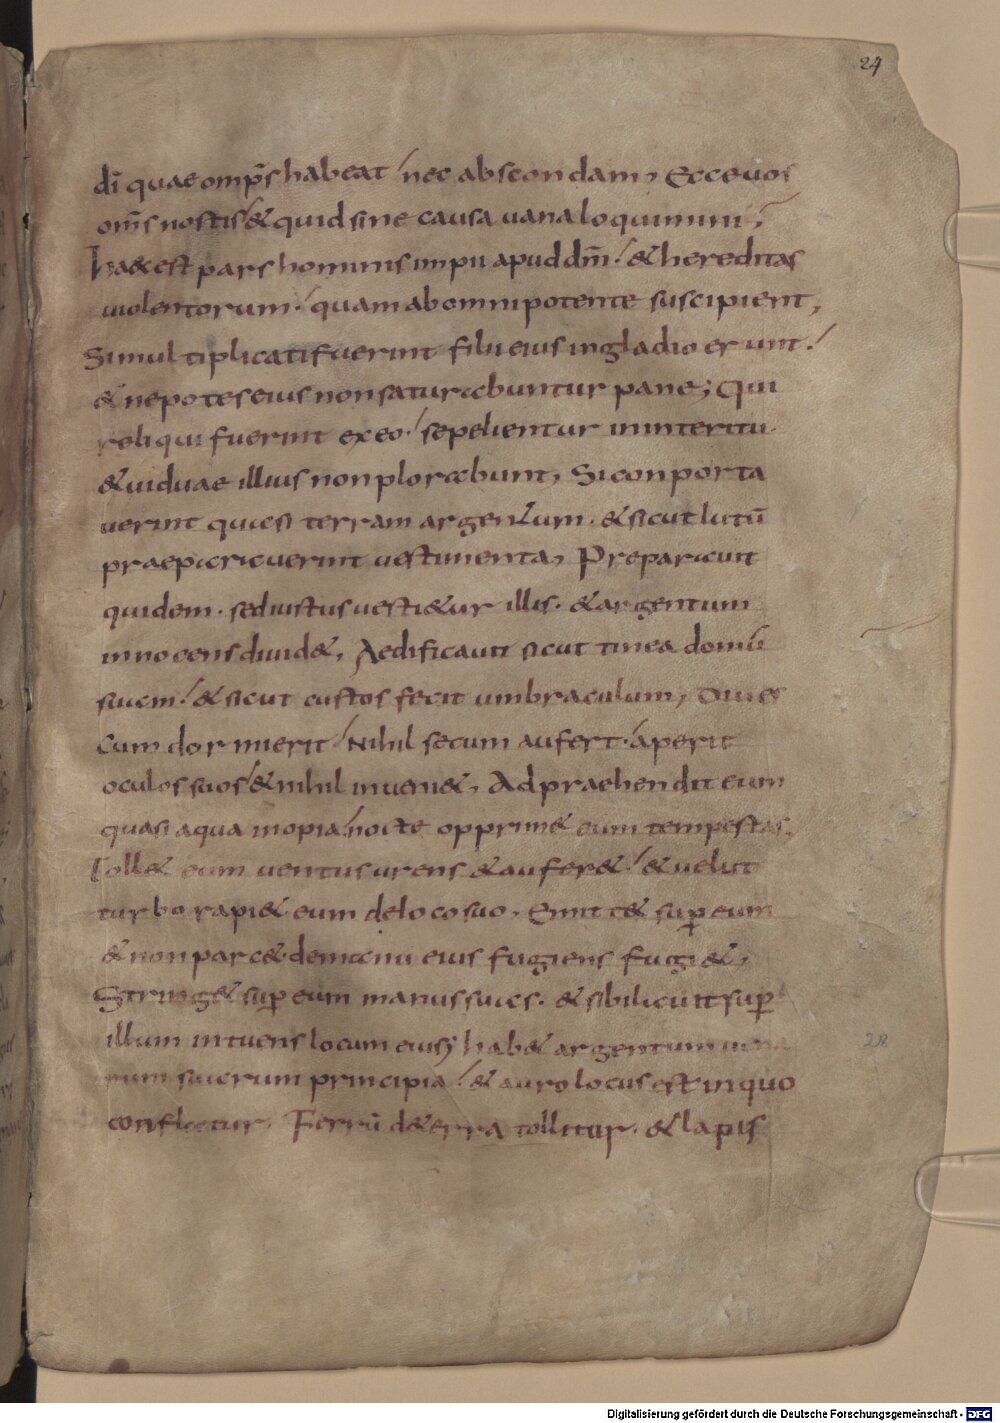 24
dī quae omp̄s habeat nec abscondam, Ecce uos
om̄s nostis & quid sine causa uana loquimini;
ha&est pars hominis impii apud dm̄ & hereditas
uiolentorum quam ab omnipotente suscipient,
Si multiplicati fuerint filii eius in gladio erunt
& nepotes eius non saturabuntur pane; Qui
reliqui fuerint ex eo sepelientur in interitu.
& uiduae illius non plorabunt, Si conporta
uerint quasi terram argentum. & sicut lutū
praeparauerint uestimenta, Preparauit
quidem. sed iustus uesti&ur illis. & argentum
innocens diuid&, Aedificauit sicut tinea domū
suam & sicut custos fecit umbraculum, Diues
cum dormierit Nihil secum aufert aperit
oculos suos & nihil inueni&, Adpraehendit eum
quasi aqua inopia nocte opprim& eum tempestas,
Toll& eum uentus urens & aufer& & uelut
turbo rapi& eum de loco suo. Emitt& sup̄ eum
& non parc& de manu eius fugiens fugi&,
String& sup̄ eum manus suas. & sibilauit sup̄
illum intuens locum eius; hab& argentum uena
rum suarum principia & auro locus est in quo
conflatur, Ferrū d&erra tollitur. & lapis
28
Digitalisierung gefördert durch die Deutsche Forschungsgemeinschaft - DFG